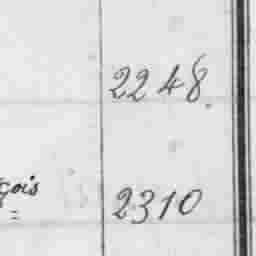 2248.
çois 2310